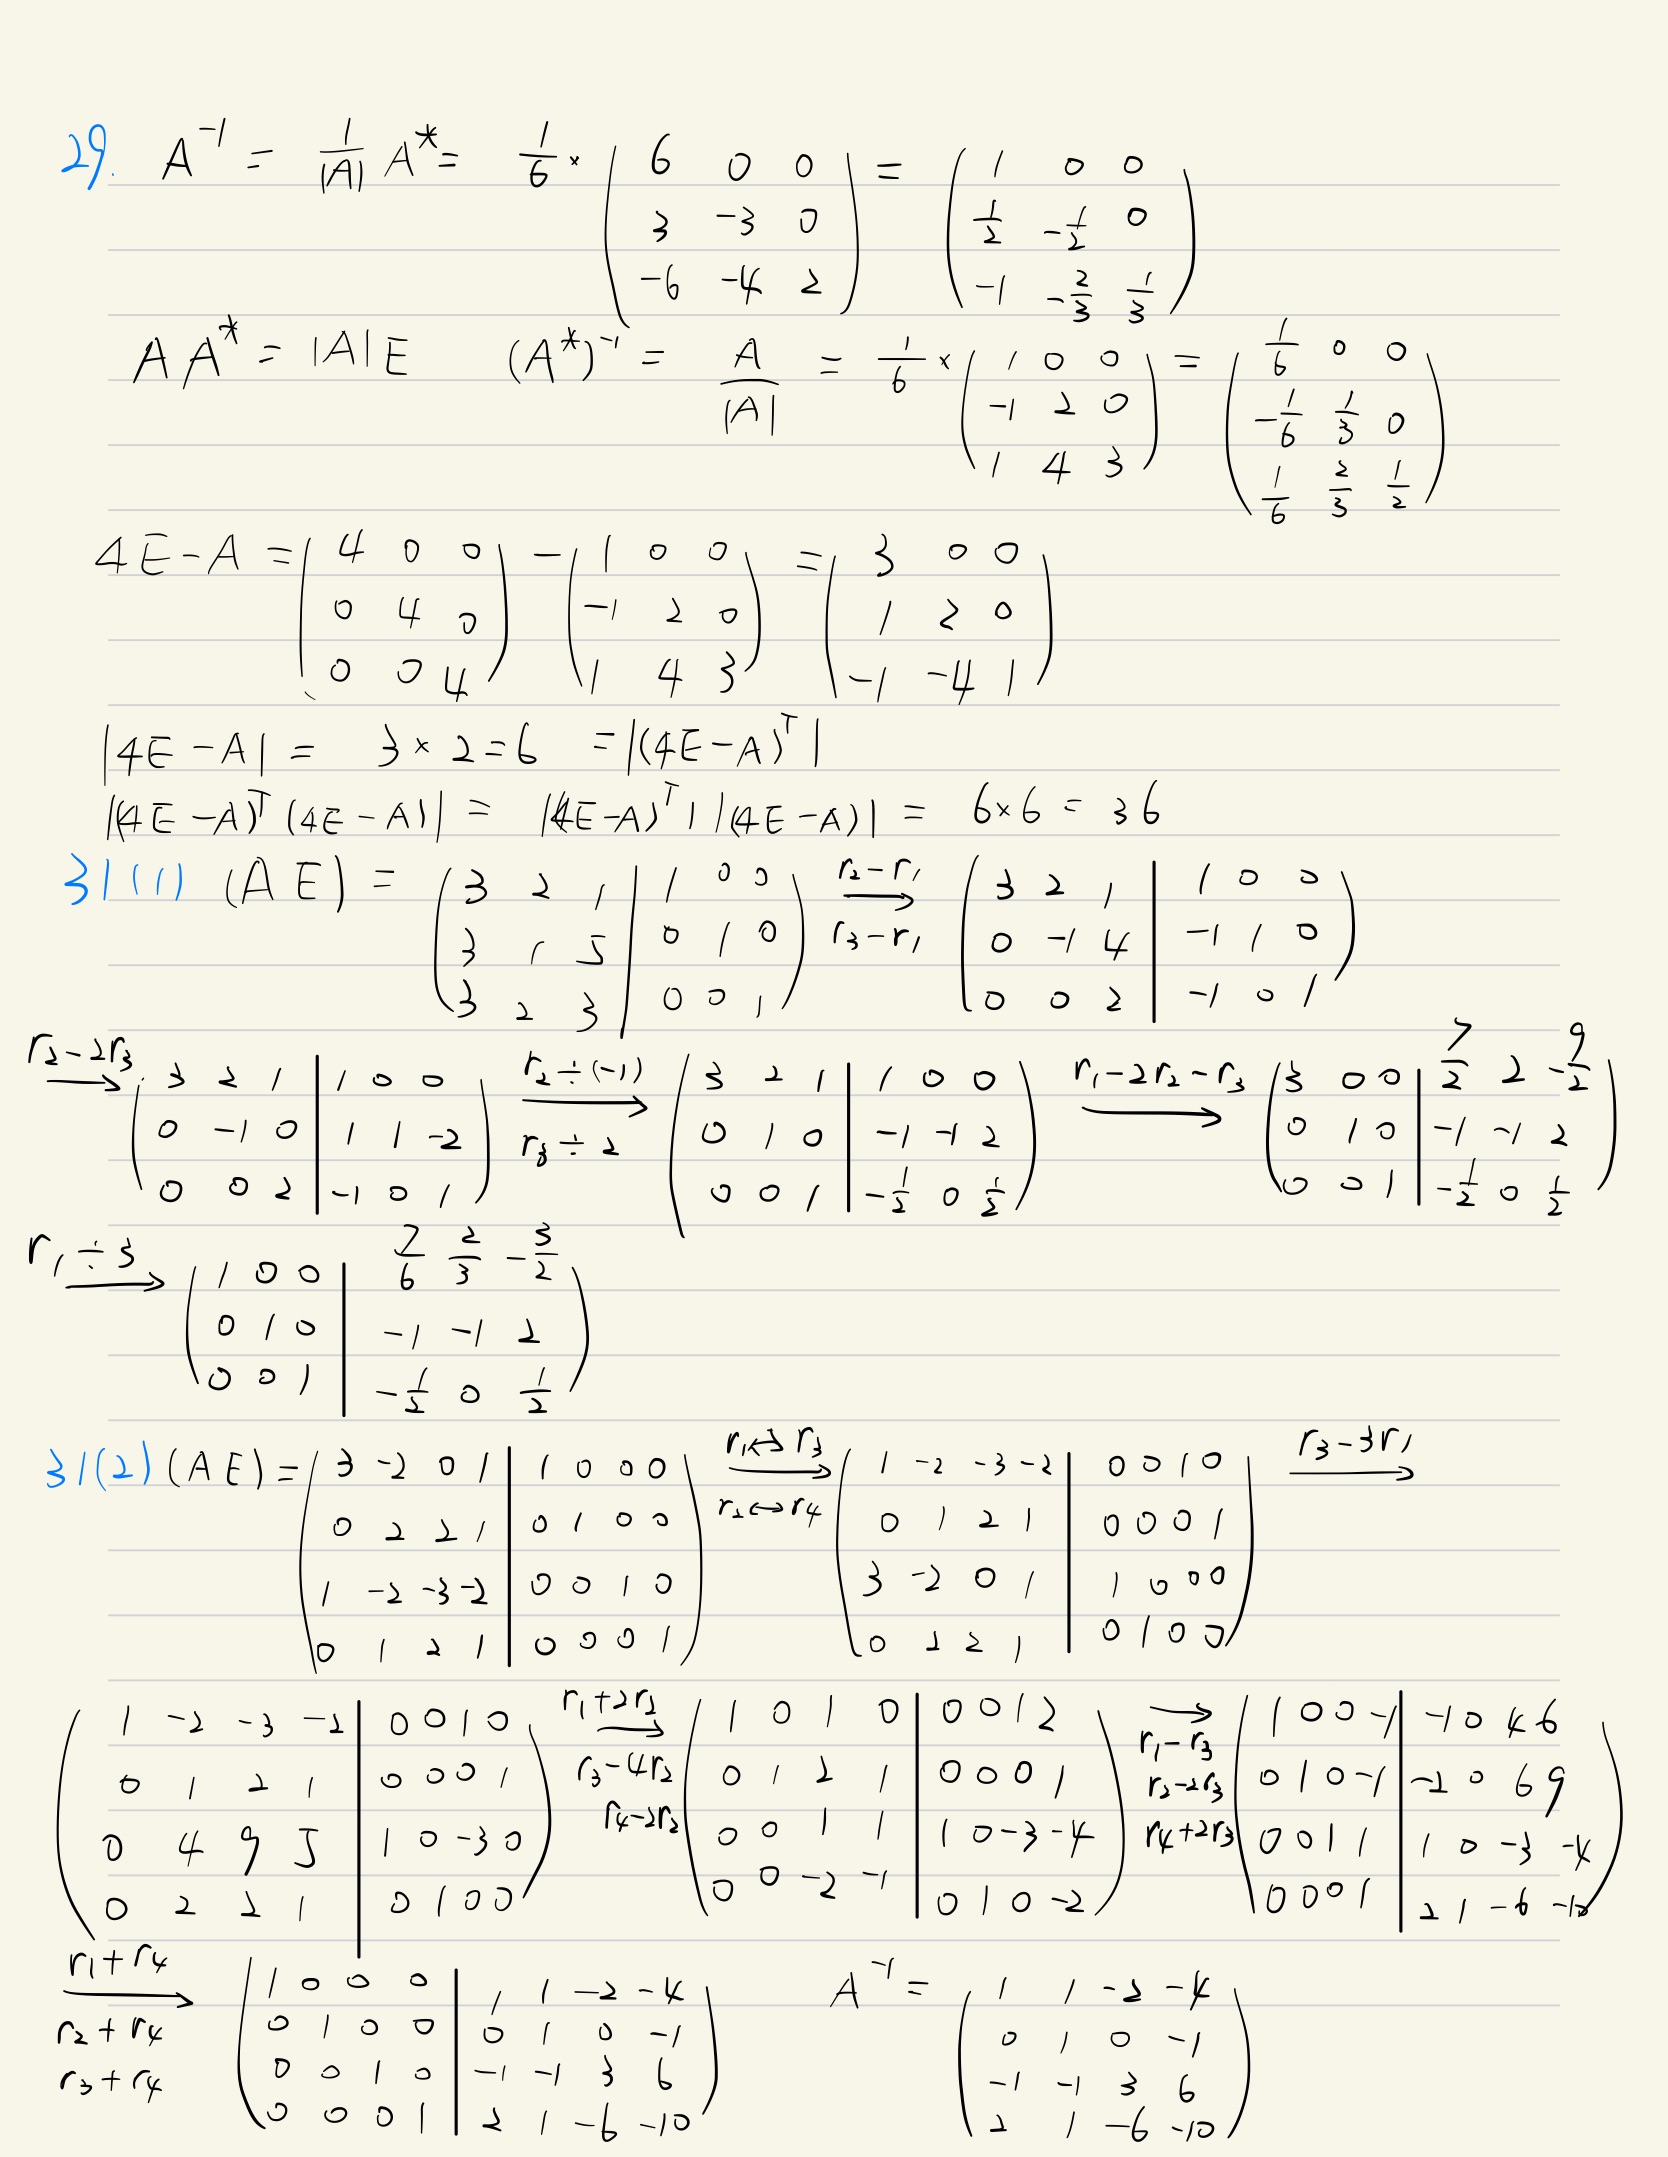 29. A⁻¹ = 1/|A| A* = 1/6 × (6 0 0; 3 -3 0; -6 -4 2) = (1 0 0; 1/2 -1/2 0; -1 -2/3 1/3)
AA* = |A|E (A*)⁻¹ = A/|A| = 1/6 × (1 0 0; -1 2 0; 1 4 3) = (1/6 0 0; -1/6 1/3 0; 1/6 2/3 1/2)
4E-A = (4 0 0; 0 4 0; 0 0 4) - (1 0 0; -1 2 0; 1 4 3) = (3 0 0; 1 2 0; -1 -4 1)
|4E-A| = 3 × 2 = 6 = |(4E-A)ᵀ|
|(4E-A)ᵀ(4E-A)| = |(4E-A)ᵀ| |(4E-A)| = 6×6 = 36
31(1) (A E) = (3 2 1 | 1 0 0; 3 1 5 | 0 1 0; 3 2 3 | 0 0 1) r₂-r₁ r₃-r₁ → (3 2 1 | 1 0 0; 0 -1 4 | -1 1 0; 0 0 2 | -1 0 1)
r₂-2r₃ → (3 2 1 | 1 0 0; 0 -1 0 | 1 1 -2; 0 0 2 | -1 0 1) r₂÷(-1) r₃÷2 → (3 2 1 | 1 0 0; 0 1 0 | -1 -1 2; 0 0 1 | -1/2 0 1/2) r₁-2r₂-r₃ → (3 0 0 | 7/2 2 -9/2; 0 1 0 | -1 -1 2; 0 0 1 | -1/2 0 1/2)
r₁÷3 → (1 0 0 | 7/6 2/3 -3/2; 0 1 0 | -1 -1 2; 0 0 1 | -1/2 0 1/2)
31(2) (A E) = (3 -2 0 1 | 1 0 0 0; 0 2 2 1 | 0 1 0 0; 1 -2 -3 -2 | 0 0 1 0; 0 1 2 1 | 0 0 0 1) r₁↔r₃ r₂↔r₄ → (1 -2 -3 -2 | 0 0 1 0; 0 1 2 1 | 0 0 0 1; 3 -2 0 1 | 1 0 0 0; 0 2 2 1 | 0 1 0 0) r₃-3r₁ →
(1 -2 -3 -2 | 0 0 1 0; 0 1 2 1 | 0 0 0 1; 0 4 9 5 | 1 0 -3 0; 0 2 2 1 | 0 1 0 0) r₁+2r₂ r₃-4r₂ r₄-2r₂ → (1 0 1 0 | 0 0 1 2; 0 1 2 1 | 0 0 0 1; 0 0 1 1 | 1 0 -3 -4; 0 0 -2 -1 | 0 1 0 -2) → r₁-r₃ r₂-2r₃ r₄+2r₃ (1 0 0 -1 | -1 0 4 6; 0 1 0 -1 | -2 0 6 9; 0 0 1 1 | 1 0 -3 -4; 0 0 0 1 | 2 1 -6 -10)
r₁+r₄ r₂+r₄ r₃+r₄ → (1 0 0 0 | 1 1 -2 -4; 0 1 0 0 | 0 1 0 -1; 0 0 1 0 | -1 -1 3 6; 0 0 0 1 | 2 1 -6 -10) A⁻¹ = (1 1 -2 -4; 0 1 0 -1; -1 -1 3 6; 2 1 -6 -10)